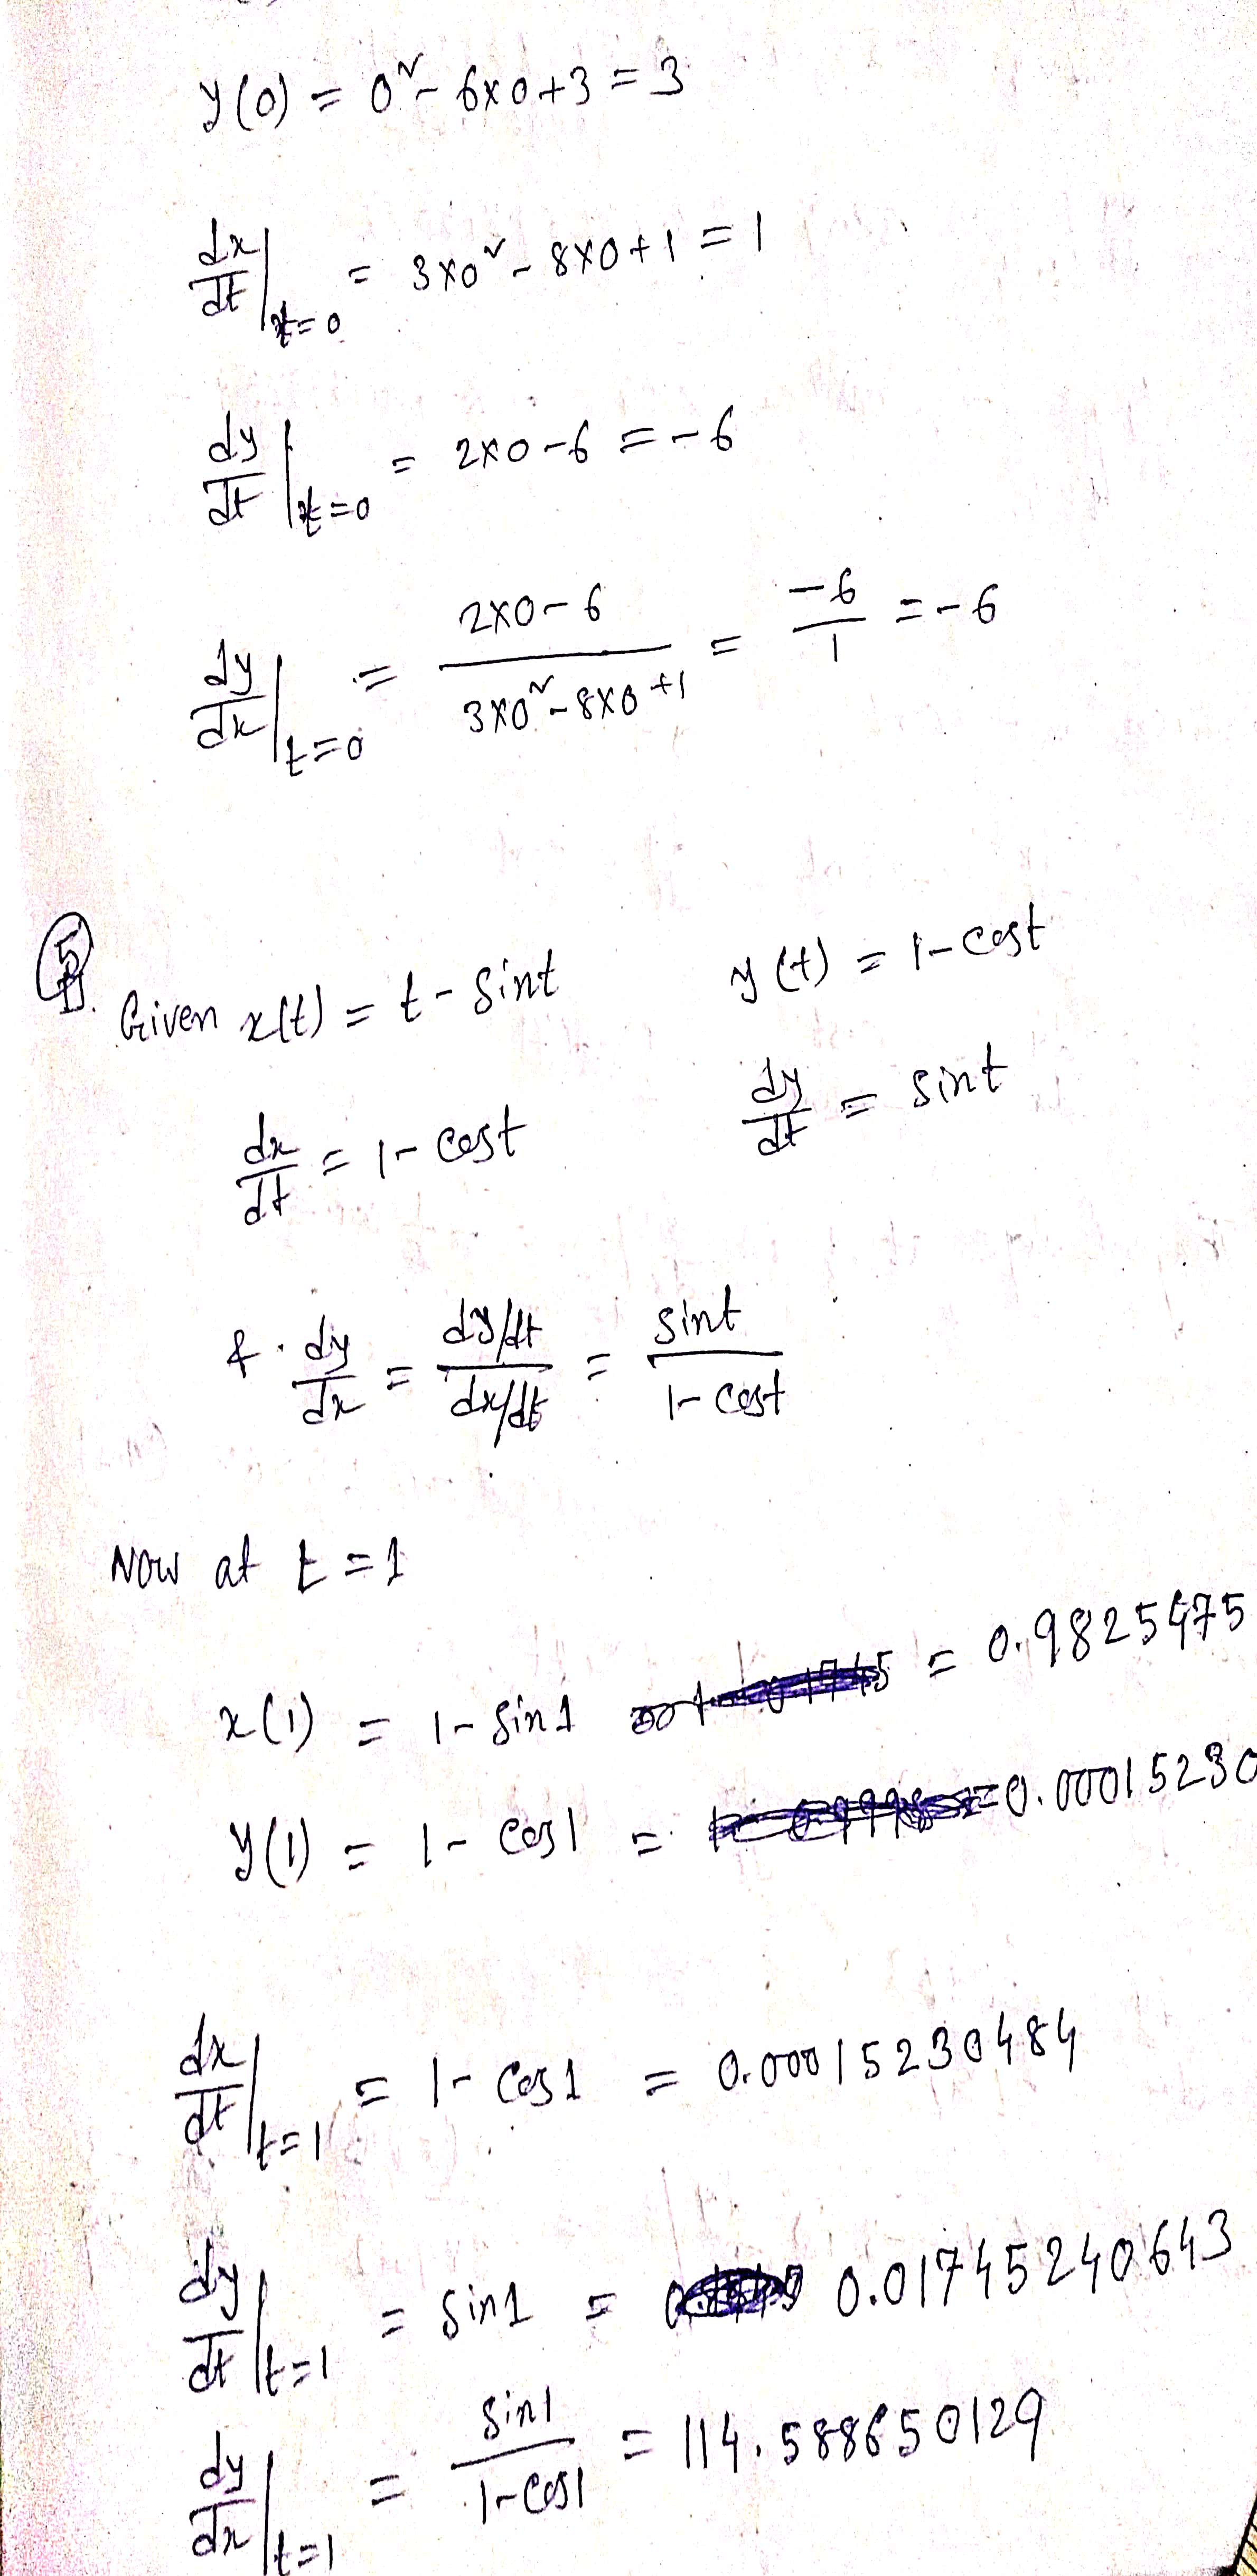 y(0) = 0² - 6×0+3 = 3
dx/dt|t=0 = 3×0² - 8×0+1 = 1
dy/dt|t=0 = 2×0-6 = -6
dy/dx|t=0 = (2×0-6)/(3×0²-8×0+1) = -6/1 = -6
5
Given x(t) = t - sint y(t) = 1-cost
dx/dt = 1- cost dy/dt = sint
& dy/dx = (dy/dt)/(dx/dt) = sint/(1-cost)
Now at t = 1
x(1) = 1- sin1 = 0.9825475
y(1) = 1- cos1 = 0.00015230
dx/dt|t=1 = 1- cos1 = 0.00015230484
dy/dt|t=1 = sin1 = 0.01745240643
dy/dx|t=1 = sin1/(1-cos1) = 114.588650129